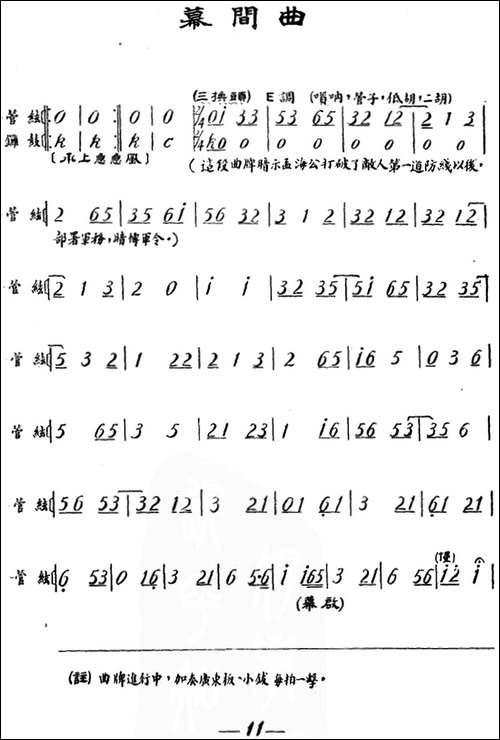 幕間曲
(三換頭) E調 (嗩吶，管子，低胡，二胡)
管絃 0 | 0 :‖: 0 | 0 | 2/4 0i 33 | 53 65 | 32 12 | 2 1 3 |
鑼鼓 | 0 0 | 0 0 | 0 0 | 0 0 |
(水上慮慮風) (這段曲牌暗示孟海公打破了敵人第一道防綫以後，
管絃 2 65 | 35 6i | 56 32 | 3 1 2 | 32 12 | 32 12 |
部署軍務，暗傳軍令。)
管絃 2 1 3 | 2 0 | i i | 32 35 | 5i 65 | 32 35 |
管絃 5 3 2 | 1 22 | 2 1 3 | 2 65 | i6 5 | 0 3 6 |
管絃 5 65 | 3 5 | 21 23 | 1 i6 | 56 53 | 35 6 |
管絃 56 53 | 32 12 | 3 21 | 01 61 | 3 21 | 61 21 |
管絃 6 53 | 0 16 | 3 21 | 6 5·6 | i i65 | 3 21 | 6 56 | i2 i |
(幕啟)
(註) 曲牌進行中，加奏廣東板、小鈸每拍一擊。
—11—